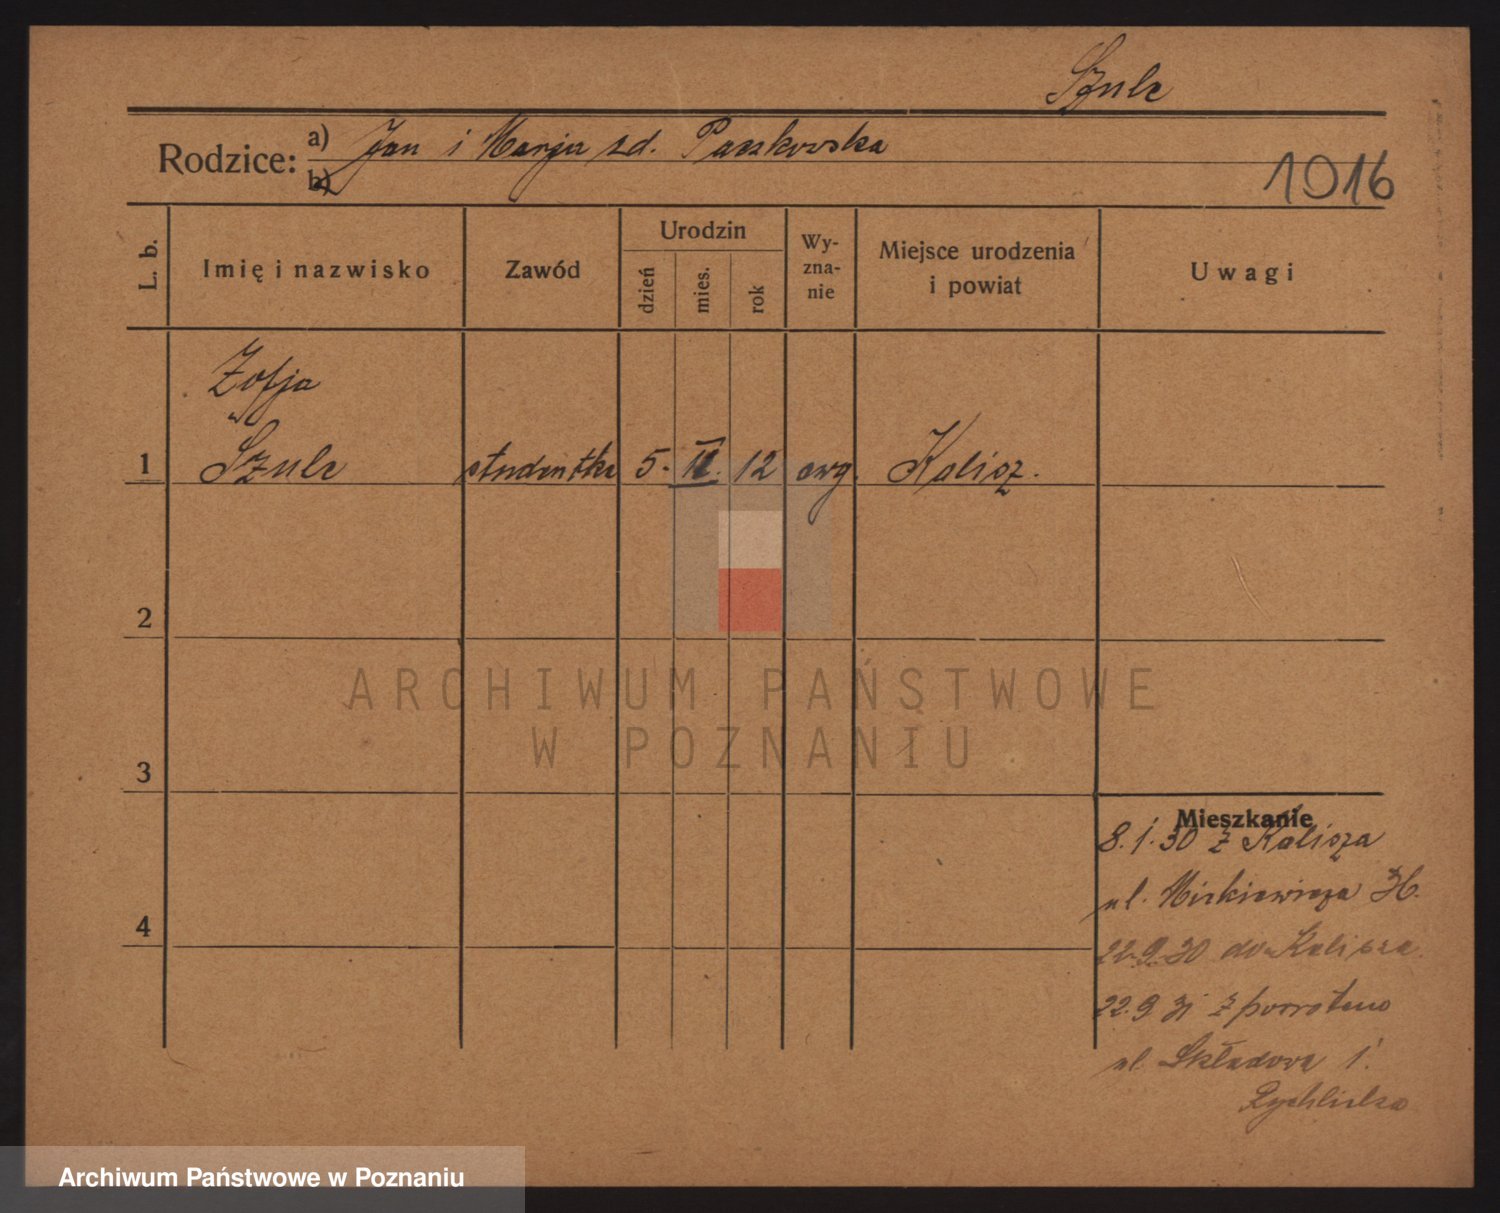 Szulc
Rodzice: a) Jan i Marja zd. Paszkowska
b)
1016
L. b.
Imię i nazwisko
Zawód
Urodzin
dzień
mies.
rok
Wy-
zna-
nie
Miejsce urodzenia
i powiat
Uwagi
Zofja
1 Szulc studentka 5. II. 12 ewg. Kalisz.
2
3
4
Mieszkanie
8.1.30 z Kalisza
ul. Mickiewicza
22.9.30 do Kalisza
22.9.31 z powrotem
ul. Składowa 1.
Rychlicka
ARCHIWUM PAŃSTWOWE
W POZNANIU
Archiwum Państwowe w Poznaniu